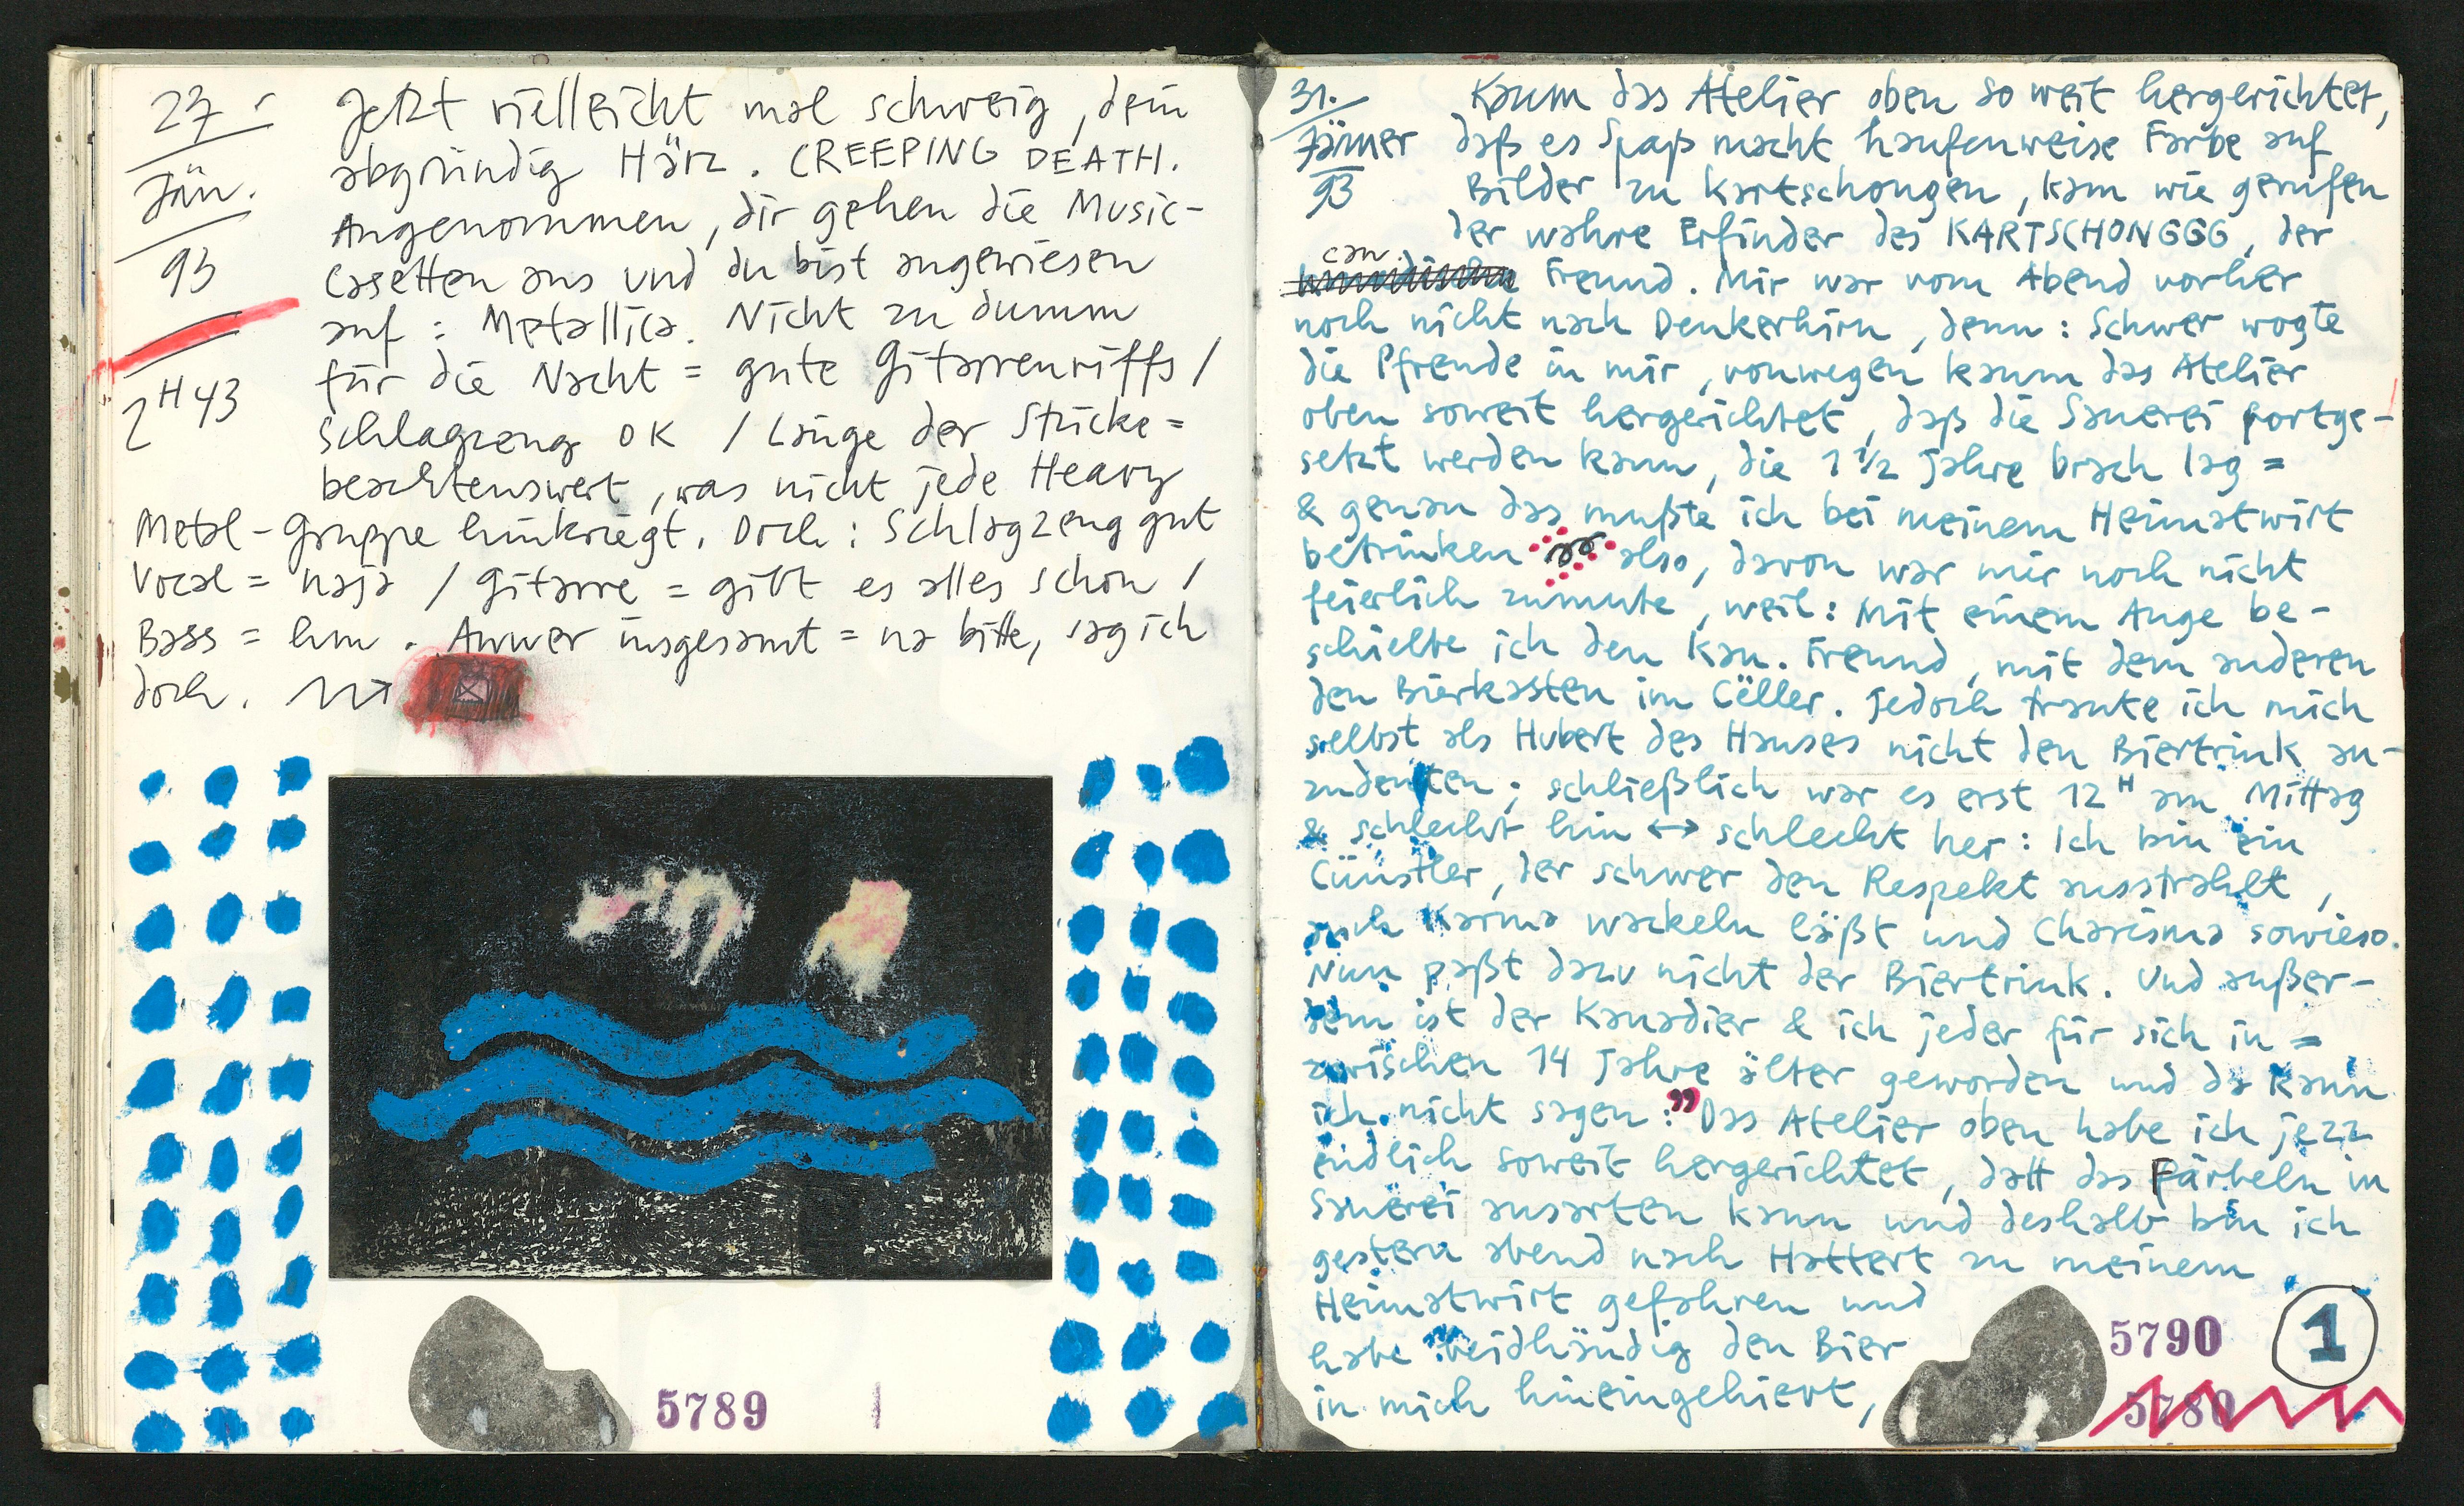 27.
Jän.
93
2H43
Jetzt vielleicht mal schweig, dein
abgründig Härz. CREEPING DEATH.
Angenommen, dir gehen die Music-
Casetten aus und du bist angewiesen
auf: Metallica. Nicht zu dumm
für die Nacht = gute Gitarrenriffs /
Schlagzeug OK / Länge der Stücke =
beachtenswert, was nicht jede Heavy
Metal-Gruppe hinkriegt. Doch: Schlagzeug gut
Vocal = naja / Gitarre = gibt es alles schon /
Bass = hm. Awwer insgesamt = na bitte, sag ich
doch.
5789
31.
Jänner
93
Kaum das Atelier oben so weit hergerichtet,
daß es Spaß macht haufenweise Farbe auf
Bilder zu kartschongen, kam wie gerufen
der wahre Erfinder des KARTSCHONGGG, der
can.
Freund. Mir war vom Abend vorher
noch nicht nach Denkerhirn, denn: Schwer wogte
die Pfreude in mir, vonwegen kaum das Atelier
oben soweit hergerichtet, daß die Sauerei fortge-
setzt werden kann, die 1 1/2 Jahre brach lag =
& genau das mußte ich bei meinem Heimatwirt
betrinken also, davon war mir noch nicht
feierlich zumute, weil: Mit einem Auge be-
schielte ich den Kan. Freund, mit dem anderen
den Bierkasten im Cëller. Jedoch traute ich mich
selbst als Hubert des Hauses nicht den Biertrink an-
zudenken; schließlich war es erst 12H am Mittag
& schlecht hin ↔ schlecht her: Ich bin ein
Cüünstler, der schwer den Respekt ausstrahlt,
auch Karma wackeln läßt und Charisma sowieso.
Nun paßt dazu nicht der Biertrink. Und außer-
dem ist der Kanadier & ich jeder für sich in =
zwischen 14 Jahre älter geworden und da kann
ich nicht sagen: "Das Atelier oben habe ich jezz
endlich soweit hergerichtet, datt das Färbeln in
Sauerei ausarten kann und deshalb bin ich
gestern abend nach Hattert zu meinem
Heimatwirt gefahren und
habe beidhändig den Bier
in mich hineingehievt,
5790
5780
1